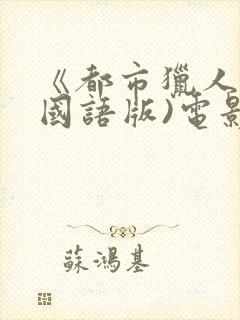 《都市獵人
國語版)電影
蘇鴻基